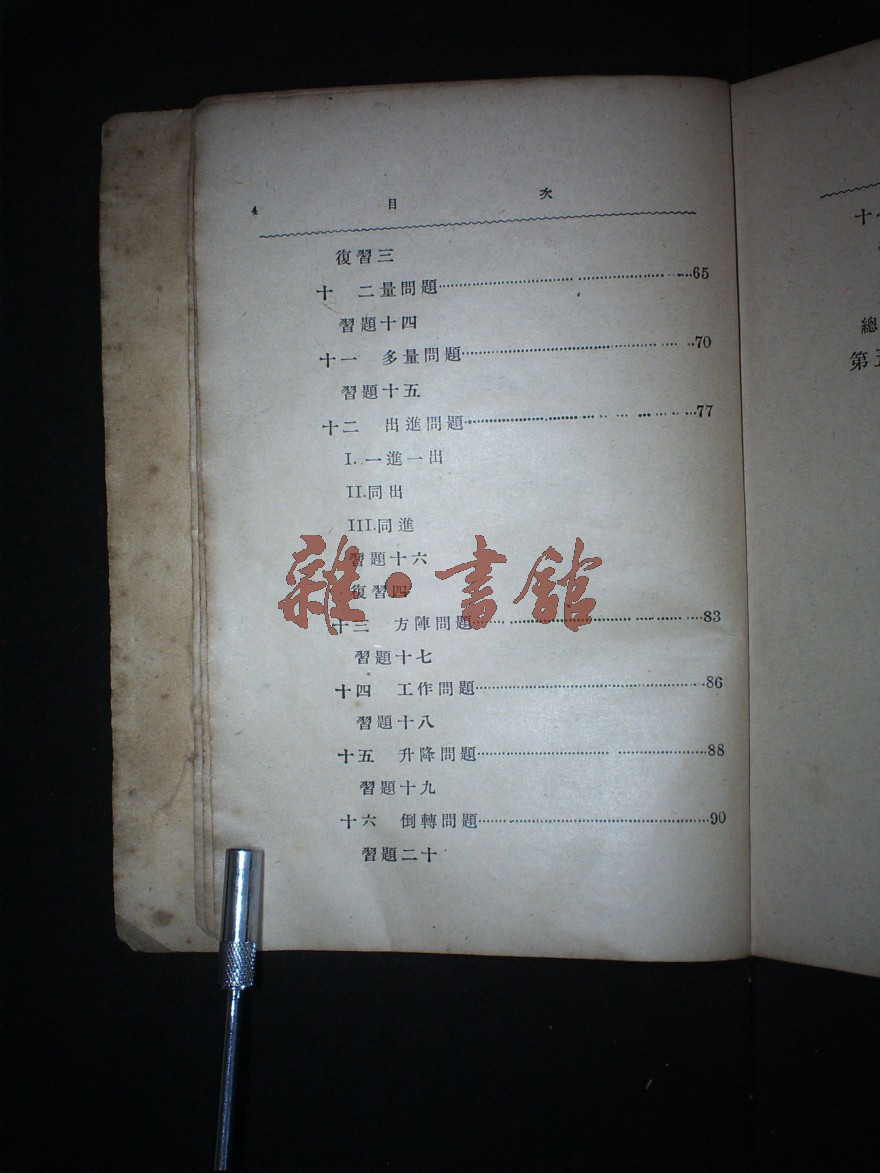 4 目 次
復習三
十 二量問題……65
習題十四
十一 多量問題……70
習題十五
十二 出進問題……77
I. 一進一出
II.同出
III.同進
習題十六
復習四
十三 方陣問題……83
習題十七
十四 工作問題……86
習題十八
十五 升降問題……88
習題十九
十六 倒轉問題……90
習題二十
雜·書館
十
總
第